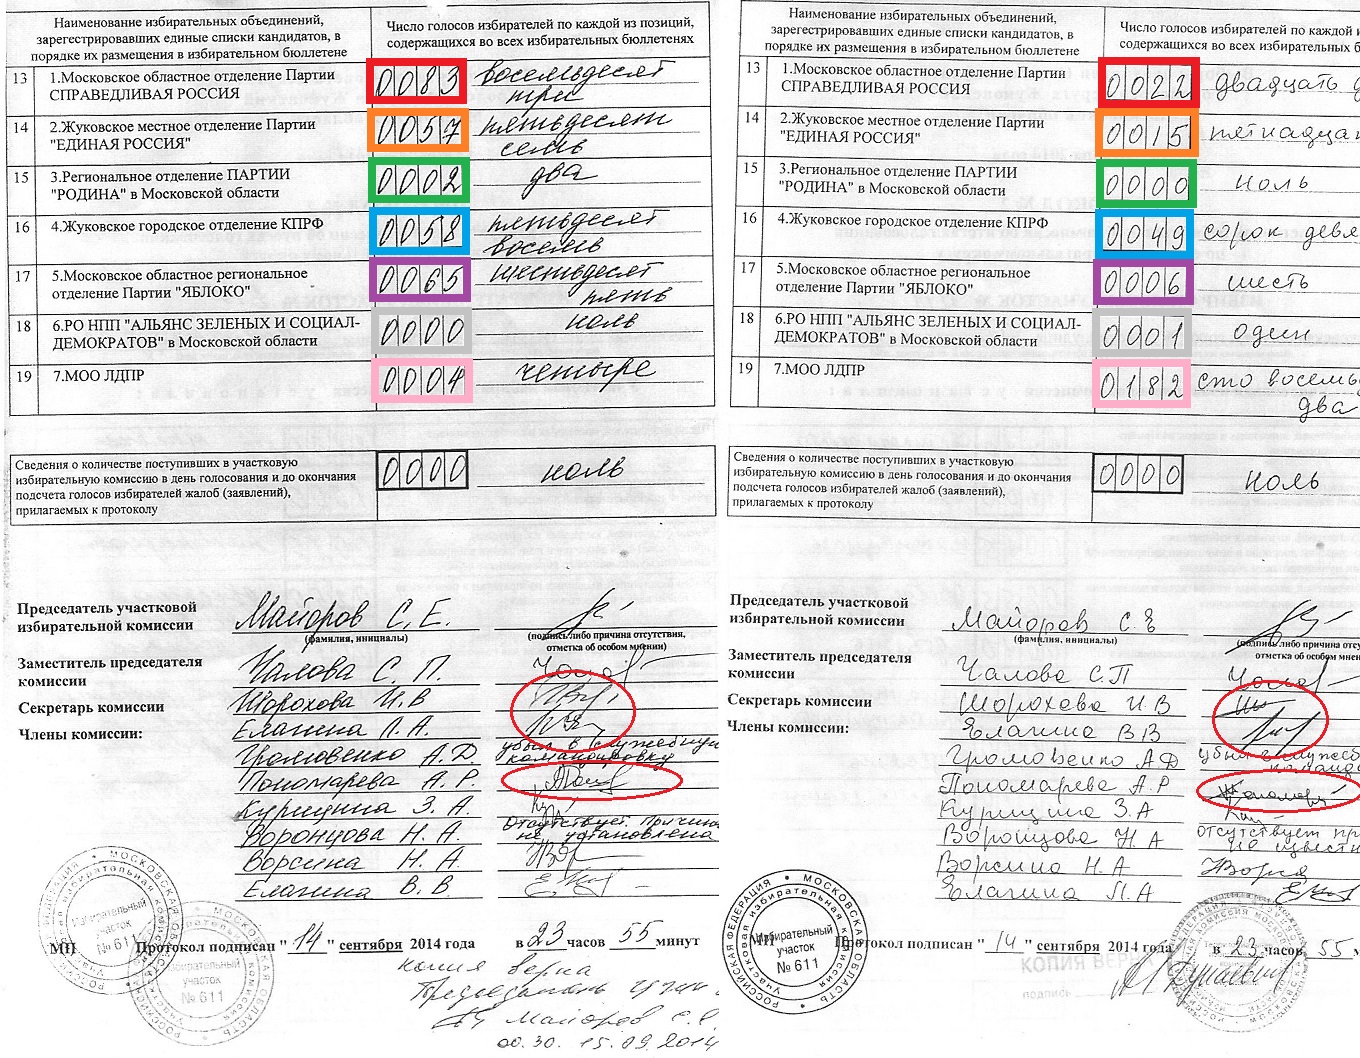 Наименование избирательных объединений,
зарегестрировавших единые списки кандидатов, в
порядке их размещения в избирательном бюллетене
Число голосов избирателей по каждой из позиций,
содержащихся во всех избирательных бюллетенях
13 1.Московское областное отделение Партии
СПРАВЕДЛИВАЯ РОССИЯ
0083 восемьдесят
три
14 2.Жуковское местное отделение Партии
"ЕДИНАЯ РОССИЯ"
0057 пятьдесят
семь
15 3.Региональное отделение ПАРТИИ
"РОДИНА" в Московской области
0002 два
16 4.Жуковское городское отделение КПРФ
0058 пятьдесят
восемь
17 5.Московское областное региональное
отделение Партии "ЯБЛОКО"
0065 шестьдесят
пять
18 6.РО НПП "АЛЬЯНС ЗЕЛЕНЫХ И СОЦИАЛ-
ДЕМОКРАТОВ" в Московской области
0000 ноль
19 7.МОО ЛДПР
0004 четыре
Сведения о количестве поступивших в участковую
избирательную комиссию в день голосования и до окончания
подсчета голосов избирателей жалоб (заявлений),
прилагаемых к протоколу
0000 ноль
Председатель участковой
избирательной комиссии
Майоров С. Е.
(фамилия, инициалы)
(подпись либо причина отсутствия,
отметка об особом мнении)
Заместитель председателя
комиссии
Чалова С. П.
Секретарь комиссии
Шорохова И.В
Члены комиссии:
Елагина Л.А.
Громовенко А.Д.
убыл в служебную
командировку
Пономарева А.Р.
Курицина З.А.
Воронцова Н.А.
Отсутствует. Причина
не установлена
Ворсина Н.А.
Елагина В.В
МП Протокол подписан " 14 " сентября 2014 года в 23 часов 55 минут
Избирательный
участок
№ 611
Избирательный
участок
№ 611
Копия верна
Председатель
Майоров С.Е.
00.30. 15.09.2014
Наименование избирательных объединений,
зарегестрировавших единые списки кандидатов, в
порядке их размещения в избирательном бюллетене
Число голосов избирателей по каждой и
содержащихся во всех избирательных б
13 1.Московское областное отделение Партии
СПРАВЕДЛИВАЯ РОССИЯ
0022 двадцать д
14 2.Жуковское местное отделение Партии
"ЕДИНАЯ РОССИЯ"
0015 пятнадцат
15 3.Региональное отделение ПАРТИИ
"РОДИНА" в Московской области
0000 ноль
16 4.Жуковское городское отделение КПРФ
0049 сорок девя
17 5.Московское областное региональное
отделение Партии "ЯБЛОКО"
0006 шесть
18 6.РО НПП "АЛЬЯНС ЗЕЛЕНЫХ И СОЦИАЛ-
ДЕМОКРАТОВ" в Московской области
0001 один
19 7.МОО ЛДПР
0182 сто восемь
два
Сведения о количестве поступивших в участковую
избирательную комиссию в день голосования и до окончания
подсчета голосов избирателей жалоб (заявлений),
прилагаемых к протоколу
0000 ноль
Председатель участковой
избирательной комиссии
Майоров С.Е
(фамилия, инициалы)
(подпись либо причина отсу
отметка об особом мнен
Заместитель председателя
комиссии
Чалова С.П
Секретарь комиссии
Шорохова И.В
Члены комиссии:
Елагина В В
Громовенко АД
убыл в служеб
команди
Пономарева А.Р
Курицина З.А
Воронцова Н.А
отсутствует при
не извест
Ворсина Н.А
Елагина Л.А
МП Протокол подписан " 14 " сентября 2014 года в 23 часов 55 м
РОССИЙСКАЯ ФЕДЕРАЦИЯ МОСКОВСКАЯ ОБЛАСТЬ
Участковая избирательная комиссия
Избирательный
участок
№ 611
КОПИЯ ВЕРНА
подпись